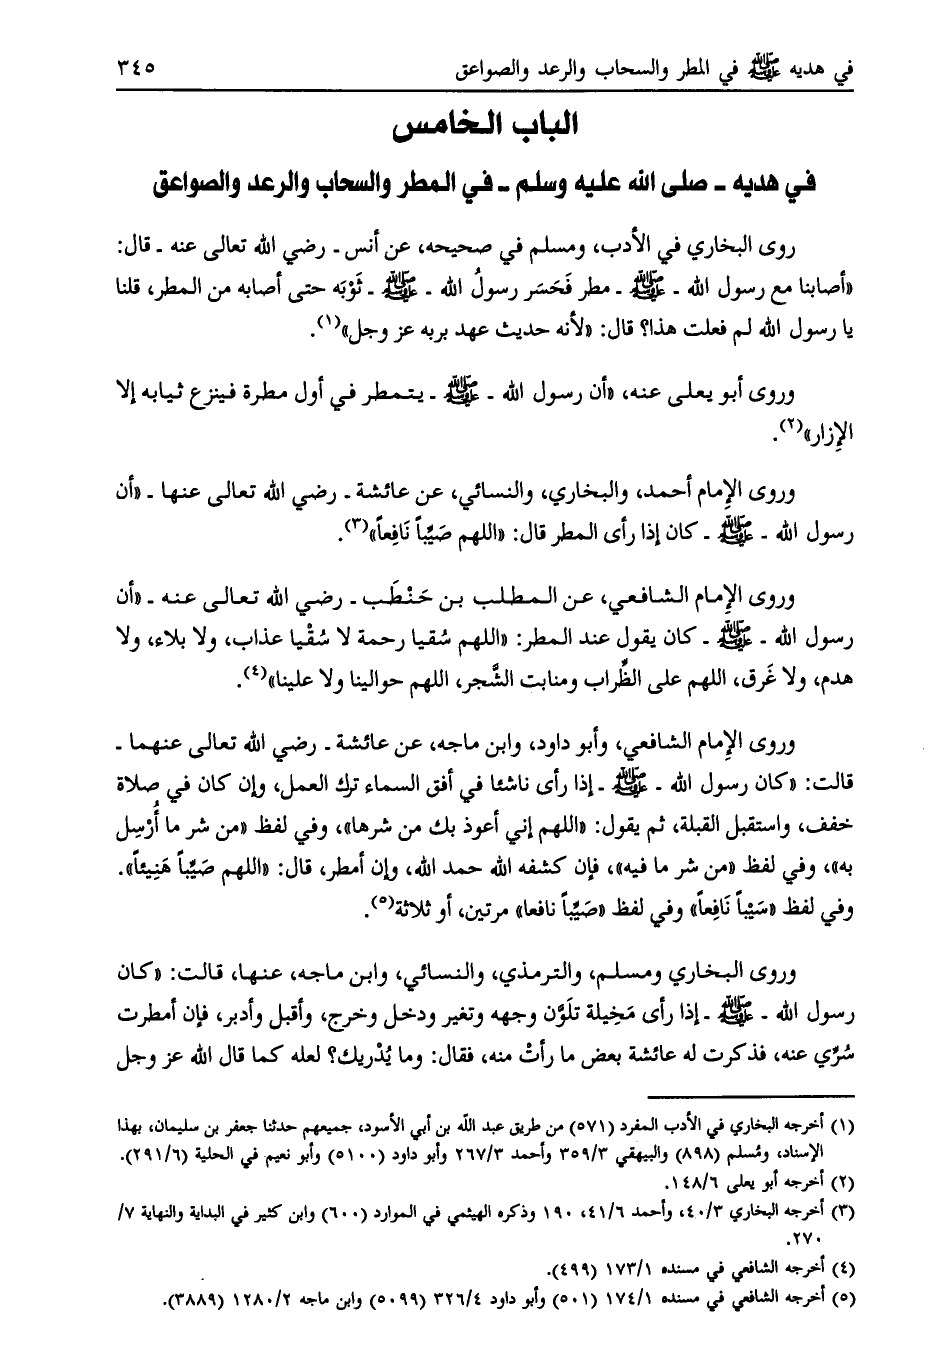 في هديه ﷺ في المطر والسحاب والرعد والصواعق ٣٤٥
الباب الخامس
في هديه ـ صلى الله عليه وسلم ـ في المطر والسحاب والرعد والصواعق
روى البخاري في الأدب، ومسلم في صحيحه، عن أنس ـ رضي الله تعالى عنه ـ قال:
«أصابنا مع رسول الله ـ ﷺ ـ مطر فَحَسَر رسولُ الله ـ ﷺ ـ ثَوْبَه حتى أصابه من المطر، قلنا
يا رسول الله لم فعلت هذا؟ قال: «لأنه حديث عهد بربه عز وجل»(١).
وروى أبو يعلى عنه، «أن رسول الله ـ ﷺ ـ يتمطر في أول مطرة فينزع ثيابه إلا
الإِزار»(٢).
وروى الإِمام أحمد، والبخاري، والنسائي، عن عائشة ـ رضي الله تعالى عنها ـ «أن
رسول الله ـ ﷺ ـ كان إذا رأى المطر قال: «اللهم صَيِّباً نَافِعاً»(٣).
وروى الإِمام الشافعي، عن المطلب بن حَنْطَب ـ رضي الله تعالى عنه ـ «أن
رسول الله ـ ﷺ ـ كان يقول عند المطر: «اللهم سُقيا رحمة لا سُقْيا عذاب، ولا بلاء، ولا
هدم، ولا غَرق، اللهم على الظِّراب ومنابت الشَّجر، اللهم حوالينا ولا علينا»(٤).
وروى الإِمام الشافعي، وأبو داود، وابن ماجه، عن عائشة ـ رضي الله تعالى عنهما ـ
قالت: «كان رسول الله ـ ﷺ ـ إذا رأى ناشئا في أفق السماء ترك العمل، وإن كان في صلاة
خفف، واستقبل القبلة، ثم يقول: «اللهم إني أعوذ بك من شرها»، وفي لفظ «من شر ما أُرْسِل
به»، وفي لفظ «من شر ما فيه»، فإن كشفه الله حمد الله، وإن أمطر، قال: «اللهم صَيِّباً هَنِيئاً».
وفي لفظ «سَيْباً نَافِعاً» وفي لفظ «صَيِّباً نافعا» مرتين، أو ثلاثة(٥).
وروى البخاري ومسلم، والترمذي، والنسائي، وابن ماجه، عنها، قالت: «كان
رسول الله ـ ﷺ ـ إذا رأى مَخِيلة تلَوَّن وجهه وتغير ودخل وخرج، وأقبل وأدبر، فإن أمطرت
سُرِّي عنه، فذكرت له عائشة بعض ما رأتْ منه، فقال: وما يُدْريك؟ لعله كما قال الله عز وجل
(١) أخرجه البخاري في الأدب المفرد (٥٧١) من طريق عبد الله بن أبي الأسود، جميعهم حدثنا جعفر بن سليمان، بهذا
الإسناد، ومُسلم (٨٩٨) والبيهقي ٣٥٩/٣ وأحمد ٢٦٧/٣ وأبو داود (٥١٠٠) وأبو نعيم في الحلية (٢٩١/٦).
(٢) أخرجه أبو يعلى ١٤٨/٦.
(٣) أخرجه البخاري ٤٠/٣، وأحمد ٤١/٦، ١٩٠ وذكره الهيثمي في الموارد (٦٠٠) وابن كثير في البداية والنهاية ٧/
٢٧٠.
(٤) أخرجه الشافعي في مسنده ١٧٣/١ (٤٩٩).
(٥) أخرجه الشافعي في مسنده ١٧٤/١ (٥٠١) وأبو داود ٣٢٦/٤ (٥٠٩٩) وابن ماجه ١٢٨٠/٢ (٣٨٨٩).